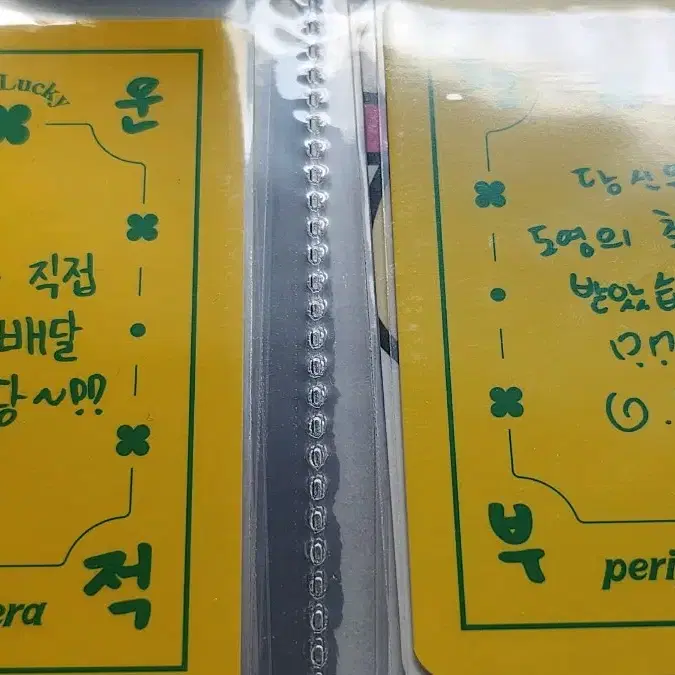 Lucky
운
직접
배달
당~!?!?
적
era
당신
도영의
받았습
!?!?
부
peri